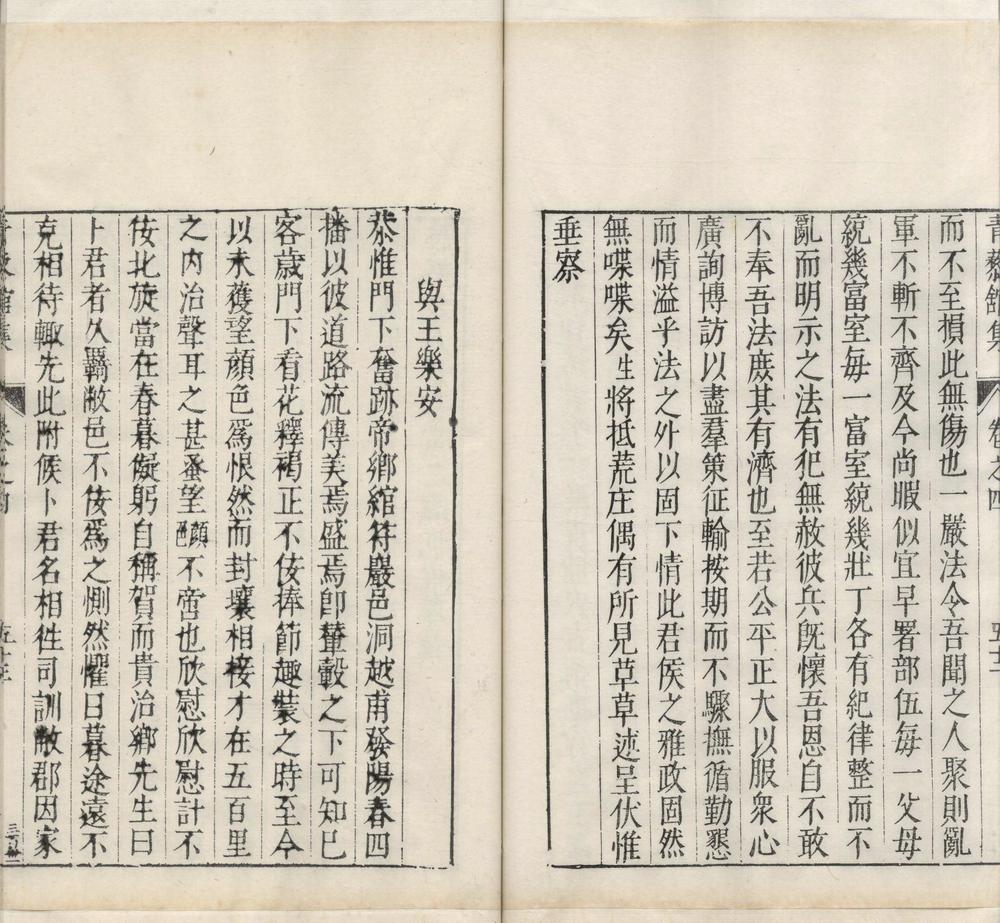 而不至損此無傷也一嚴法令吾聞之人聚則亂
軍不斬不齊及今尚暇似宜早署部伍每一父母
統幾富室每一富室統幾壯丁各有紀律整而不
亂而明示之法有犯無赦彼兵旣懷吾恩自不敢
不奉吾法庶其有濟也至若公平正大以服衆心
廣詢博訪以盡羣策征輸按期而不驟撫循勤懇
而情溢乎法之外以固下情此君侯之雅政固然
無喋喋矣生將抵荒庄偶有所見草草述呈伏惟
垂察
與王樂安
恭惟門下奮跡帝鄉綰符巖邑洞越甫發陽春四
播以彼道路流傳美焉盛焉卽輦轂之下可知巳
客歲門下看花釋褐正不佞捧節趣裝之時至今
以未獲望顏色爲恨然而封壤相接才在五百里
之內治聲耳之甚蚤望顏色不啻也欣慰欣慰計不
佞北旋當在春暮儗躬自稱賀而貴治鄉先生曰
卜君者久羈敝邑不佞爲之惻然懼日暮途遠不
克相待輙先此附候卜君名相徃司訓敝郡因家
卷之四